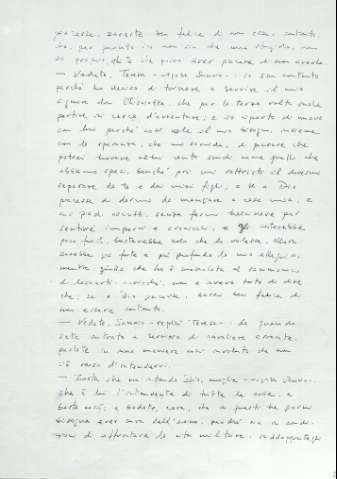 piacesse, sarette ben felice di non esser contento.
che, per quanto io non sia che una
— Vedete, Teresa - rispose Sancio -: io son contento
perché ho deciso di tornare a servire il mio
signore don Chisciotte, che per la terza volta vuole
partire in cerca d'avventure; e io riparto di nuovo
con lui perché così vuole il mio bisogno, insieme
con la speranza, che mi di pensare che
potrei trovare altri cento scudi come quelli che
abbiamo spesi, benché poi mi rattristi il dovermi
separare da te e dai miei figli; e se a Dio
piacesse di darmi da mangiare a casa mia, e
coi piedi asciutti, senza farmi trascinare per
sentieri impervi e crocicchi, e gli costerebbe
poco farlo, basterebbe solo che lo volesse, allora
sarebbe più forte e più profonda la mia allegria,
mentre quella che ho è mescolata al rammarico
di lasciarti. sicché, non a avevo torto di dire
che, se a Dio piacesse, sarei ben felice di
non essere contento.
— Vedete, Sancio - replicò Teresa -: da quando
siete entrato a servizio di cavaliere errante,
parlate in una maniera così involuta che non
c'è verso d'intendervi.
— Basta che m'intenda Iddio, moglie - rispose Sancio,
che è lui l'intenditore di tutte le cose, e
basta così; e badate, cara, che in questi tre giorni
bisogna aver cura dell'asino, perché sia in condi-
zione di affrontare la vita militare, raddoppiategli